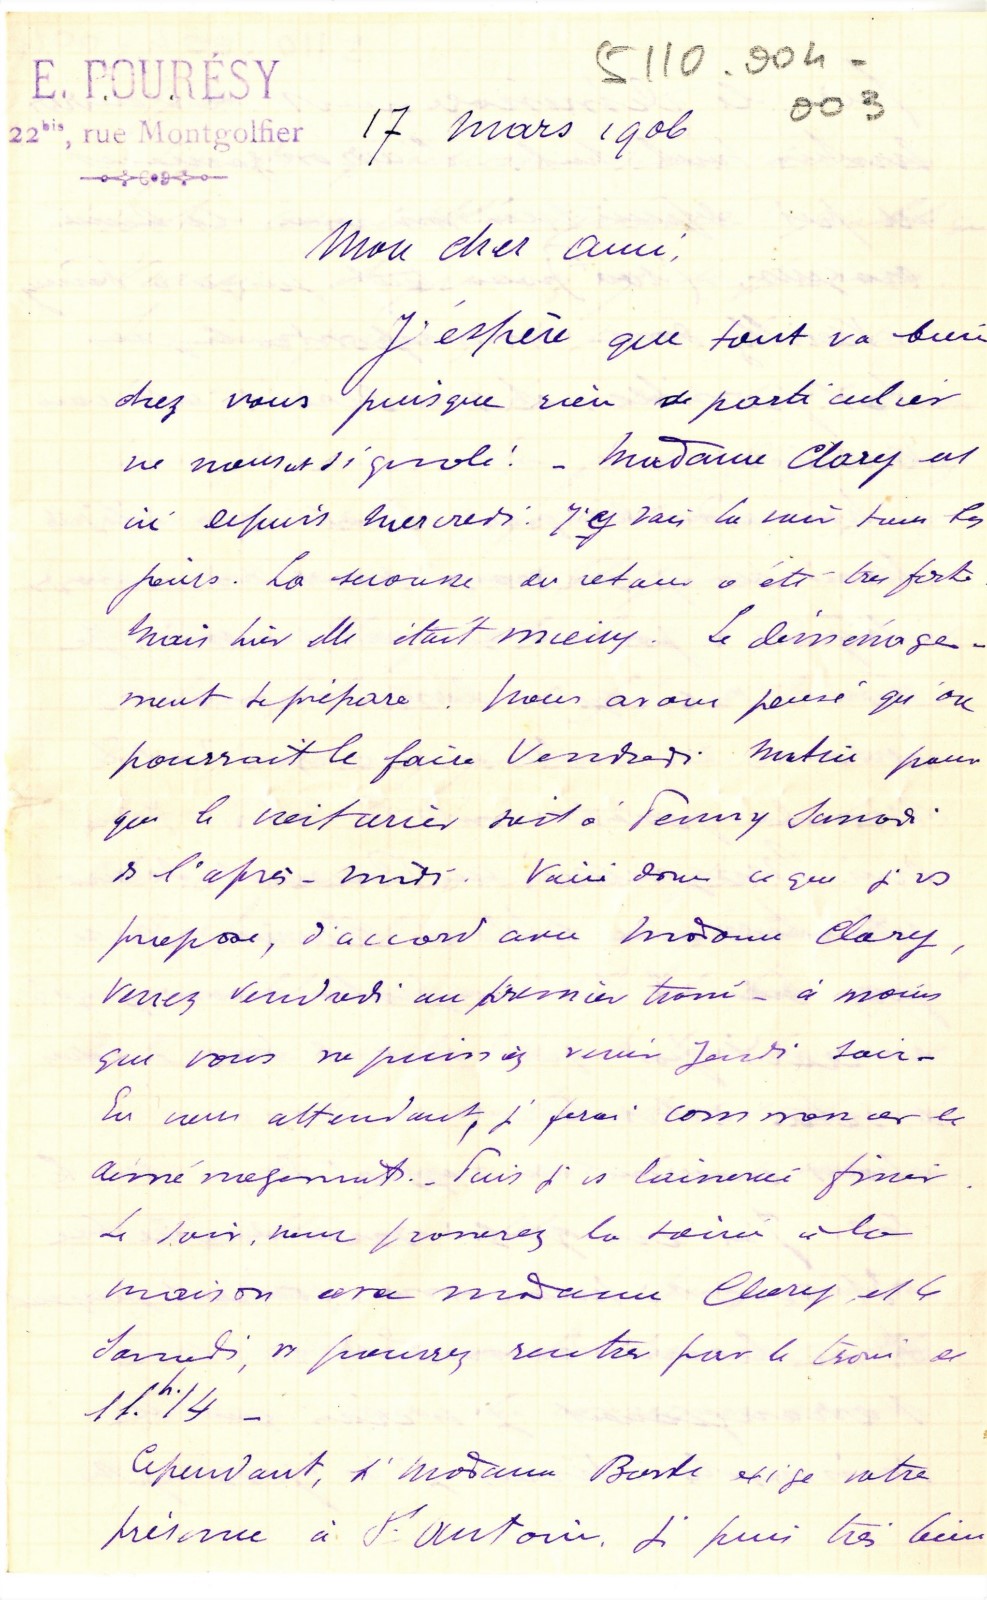 E. POURÉSY
22bis, rue Montgolfier
5110.904-
003
17 mars 1906
Mon cher ami,
J'espère que tout va bien
chez vous puisque rien de particulier
ne nous est signalé. - Madame Clary est
ici depuis Mercredi. J'y vais la voir tous les
jours. La secousse du retour a été très forte.
Mais hier elle était mieux. Le déménage-
ment se prépare. Nous avons pensé qu'on
pourrait le faire Vendredi matin pour
que le voiturier soit à Samedi
de l'après-midi. Voici donc ce que je vs
propose, d'accord avec Madame Clary,
Venez Vendredi au premier train - à moins
que vous ne puissiez venir Jeudi soir -
En vous attendant, je ferai commencer le
déménagement. - Puis je vs laisserai finir.
Le soir, vous passerez la soirée à la
maison avec madame Clary et le
Samedi, vs pourrez rentrer par le train de
11.h 14 -
Cependant, si Madame exige votre
présence à St Antoine, je puis très bien